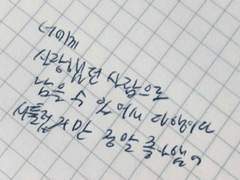 너에게
사랑했던 사람으로
남을 수 있어서 다행이다
서툴렀지만 정말 좋아했어